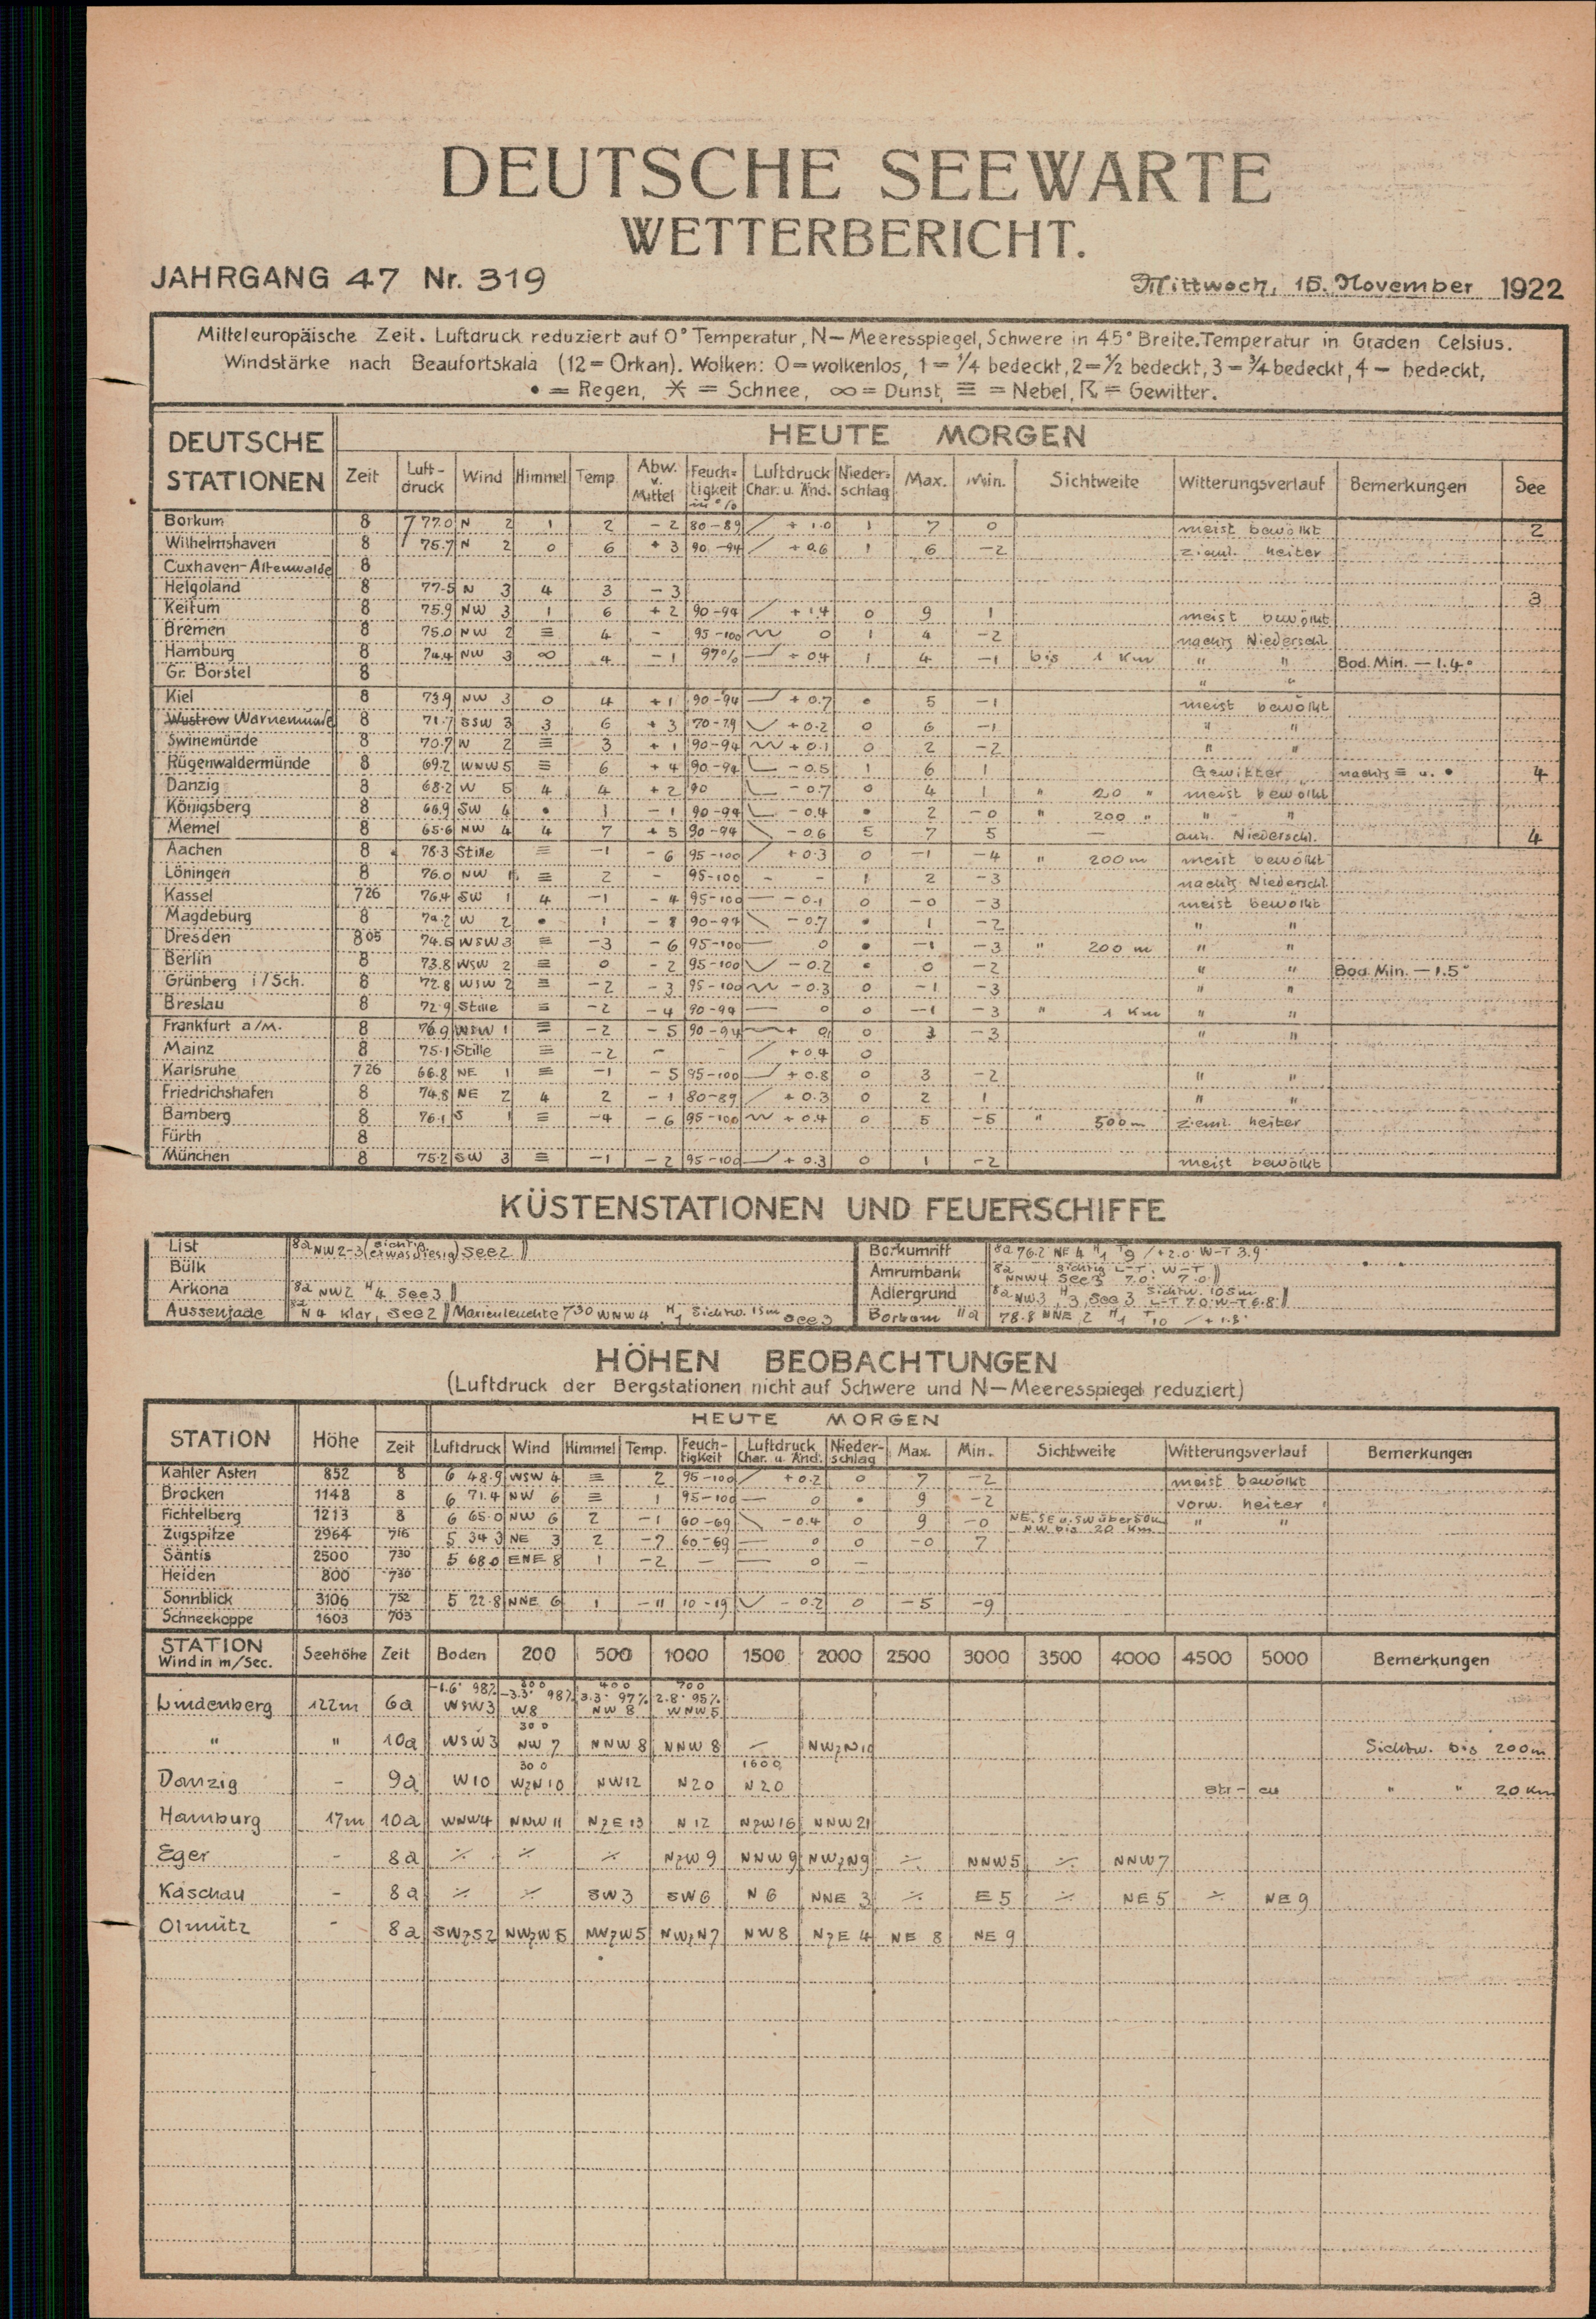 DEUTSCHE SEEWARTE
WETTERBERICHT.
JAHRGANG 47 Nr. 319 Mittwoch, 15. November 1922
Mitteleuropäische Zeit. Luftdruck reduziert auf 0° Temperatur, N—Meeresspiegel, Schwere in 45° Breite. Temperatur in Graden Celsius.
Windstärke nach Beaufortskala (12=Orkan). Wolken: 0=wolkenlos, 1=¼ bedeckt, 2=½ bedeckt, 3=¾ bedeckt, 4— bedeckt,
• = Regen, ✶ = Schnee, ∞ = Dunst, ≡ = Nebel, ☈ = Gewitter.
DEUTSCHE STATIONEN HEUTE MORGEN
Zeit Luft-druck Wind Himmel Temp. Abw. v. Mittel Feuch-tigkeit in % Luftdruck Char. u. Änd. Nieder-schlag Max. Min. Sichtweite Witterungsverlauf Bemerkungen See
Borkum 8 777.0 N 2 1 2 -2 80-89 / +1.0 1 7 0 meist bewölkt 2
Wilhelmshaven 8 75.7 N 2 0 6 +3 90-94 / +0.6 1 6 -2 zieml. heiter
Cuxhaven-Altenwalde 8
Helgoland 8 77.5 N 3 4 3 -3 3
Keitum 8 75.9 NW 3 1 6 +2 90-94 / +1.4 0 9 1 meist bewölkt
Bremen 8 75.0 NW 2 ≡ 4 - 95-100 0 1 4 -2 nachts Niederschl.
Hamburg 8 74.4 NW 3 ∞ 4 -1 97% +04 1 4 -1 bis 1 Km " " Bod. Min. -1.4°
Gr. Borstel 8 " "
Kiel 8 73.9 NW 3 0 4 +1 90-94 +0.7 • 5 -1 meist bewölkt
Wustrow Warnemünde 8 71.7 SSW 3 3 6 +3 70-79 +0.2 0 6 -1 " "
Swinemünde 8 70.7 W 2 ≡ 3 +1 90-94 +0.1 0 2 -2 " "
Rügenwaldermünde 8 69.2 WNW 5 ≡ 6 +4 90-94 -0.5 1 6 1 Gewitter nachts ≡ u. • 4
Danzig 8 68.2 W 5 4 4 +2 90 -0.7 0 4 1 " 20 " meist bewölkt
Königsberg 8 66.9 SW 4 • 1 -1 90-94 -0.4 • 2 -0 " 200 " " "
Memel 8 65.6 NW 4 4 7 +5 90-94 \ -0.6 5 7 5 — anh. Niederschl. 4
Aachen 8 78.3 Stille ≡ -1 -6 95-100 / +0.3 0 -1 -4 " 200 m meist bewölkt
Löningen 8 76.0 NW 1 ≡ 2 - 95-100 - - 1 2 -3 nachts Niederschl.
Kassel 726 76.4 SW 1 4 -1 -4 95-100 — -0.1 0 -0 -3 meist bewölkt
Magdeburg 8 74.2 W 2 • 1 -8 90-94 \ -0.7 • 1 -2 " "
Dresden 805 74.5 WSW 3 ≡ -3 -6 95-100 — 0 • -1 -3 " 200 m " "
Berlin 8 73.8 WSW 2 ≡ 0 -2 95-100 -0.2 • 0 -2 " " Bod. Min. -1.5°
Grünberg i/Sch. 8 72.8 WSW 2 ≡ -2 -3 95-100 -0.3 0 -1 -3 " "
Breslau 8 72.9 Stille ≡ -2 -4 90-94 — 0 0 -1 -3 " 1 Km " "
Frankfurt a/M. 8 76.9 WSW 1 ≡ -2 -5 90-94 0 3 -3 " "
Mainz 8 75.1 Stille ≡ -2 - - / +0.4 0
Karlsruhe 726 66.8 NE 1 ≡ -1 -5 95-100 +0.8 0 3 -2 " "
Friedrichshafen 8 74.8 NE 2 4 2 -1 80-89 / +0.3 0 2 1 " "
Bamberg 8 76.1 S 1 ≡ -4 -6 95-100 +0.4 0 5 -5 " 500 m zieml. heiter
Fürth 8
München 8 75.2 SW 3 ≡ -1 -2 95-100 +0.3 0 1 -2 meist bewölkt
KÜSTENSTATIONEN UND FEUERSCHIFFE
List 8a NW 2-3 (sichtig etwas diesig) See 2 Borkumriff 8a 76.2 NE 4 H1 T9 / +2.0 W-T 3.9
Bülk Amrumbank 8a NNW4 sichtig See 3 L-T 7.0 W-T 7.0
Arkona 8a NW 2 H4 See 3 Adlergrund 8a NW 3 H3 See 3 Sichtw. 10 sm L-T 7.0 W-T 6.8
Aussenjade 8a N 4 klar, See 2 Marienleuchte 730 WNW 4, H1 Sichtw. 15m See 3 Borkum 11a 78.8 NNE 2 H1 T10 / +1.8
HÖHEN BEOBACHTUNGEN
(Luftdruck der Bergstationen nicht auf Schwere und N—Meeresspiegel reduziert)
STATION Höhe HEUTE MORGEN
Zeit Luftdruck Wind Himmel Temp. Feuch-tigkeit Luftdruck Char. u. Änd. Nieder-schlag Max. Min. Sichtweite Witterungsverlauf Bemerkungen
Kahler Asten 852 8 6 48.9 WSW 4 ≡ 2 95-100 / +0.2 0 7 -2 meist bewölkt
Brocken 1148 8 6 71.4 NW 6 ≡ 1 95-100 — 0 • 9 -2 vorw. heiter
Fichtelberg 1213 8 6 65.0 NW 6 2 -1 60-69 \ -0.4 0 9 -0 NE, SE u. SW über 50 km NW bis 20 Km " "
Zugspitze 2964 716 5 34 3 NE 3 2 -7 60-69 — 0 0 -0 7
Säntis 2500 730 5 68.0 ENE 8 1 -2 — — 0 —
Heiden 800 730
Sonnblick 3106 752 5 22.8 NNE 6 1 -11 10-19 -0.2 0 -5 -9
Schneekoppe 1603 703
STATION Wind in m/Sec. Seehöhe Zeit Boden 200 500 1000 1500 2000 2500 3000 3500 4000 4500 5000 Bemerkungen
-1.6° 98% 300 -3.3° 98% 400 3.3° 97% 700 2.8° 95%
Lindenberg 122m 6a WSW3 W8 NW 8 WNW5
300
" " 10a WSW3 NW 7 NNW 8 NNW 8 NWzN10 Sichtw. bis 200m
300 1600
Danzig - 9a W10 WzN10 NW12 N20 N20 str-cu " " 20 Km
Hamburg 17m 10a WNW4 NNW 11 NzE 13 N 12 NzW16 NNW 21
Eger - 8a ⁒ ⁒ ⁒ NzW 9 NNW 9 NWzN9 ⁒ NNW5 ⁒ NNW7
Kaschau - 8a ⁒ ⁒ SW3 SW6 N6 NNE 3 ⁒ E 5 ⁒ NE5 ⁒ NE 9
Olmütz - 8a SWzS2 NWzW5 NWzW5 NWzN7 NW8 NzE 4 NE 8 NE 9